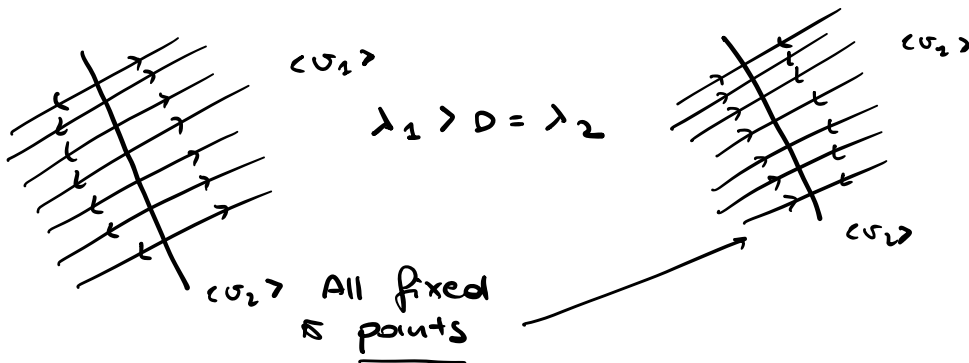 <v₁>
<v₁>
λ₁ > 0 = λ₂
<v₂>
<v₂> All fixed
points